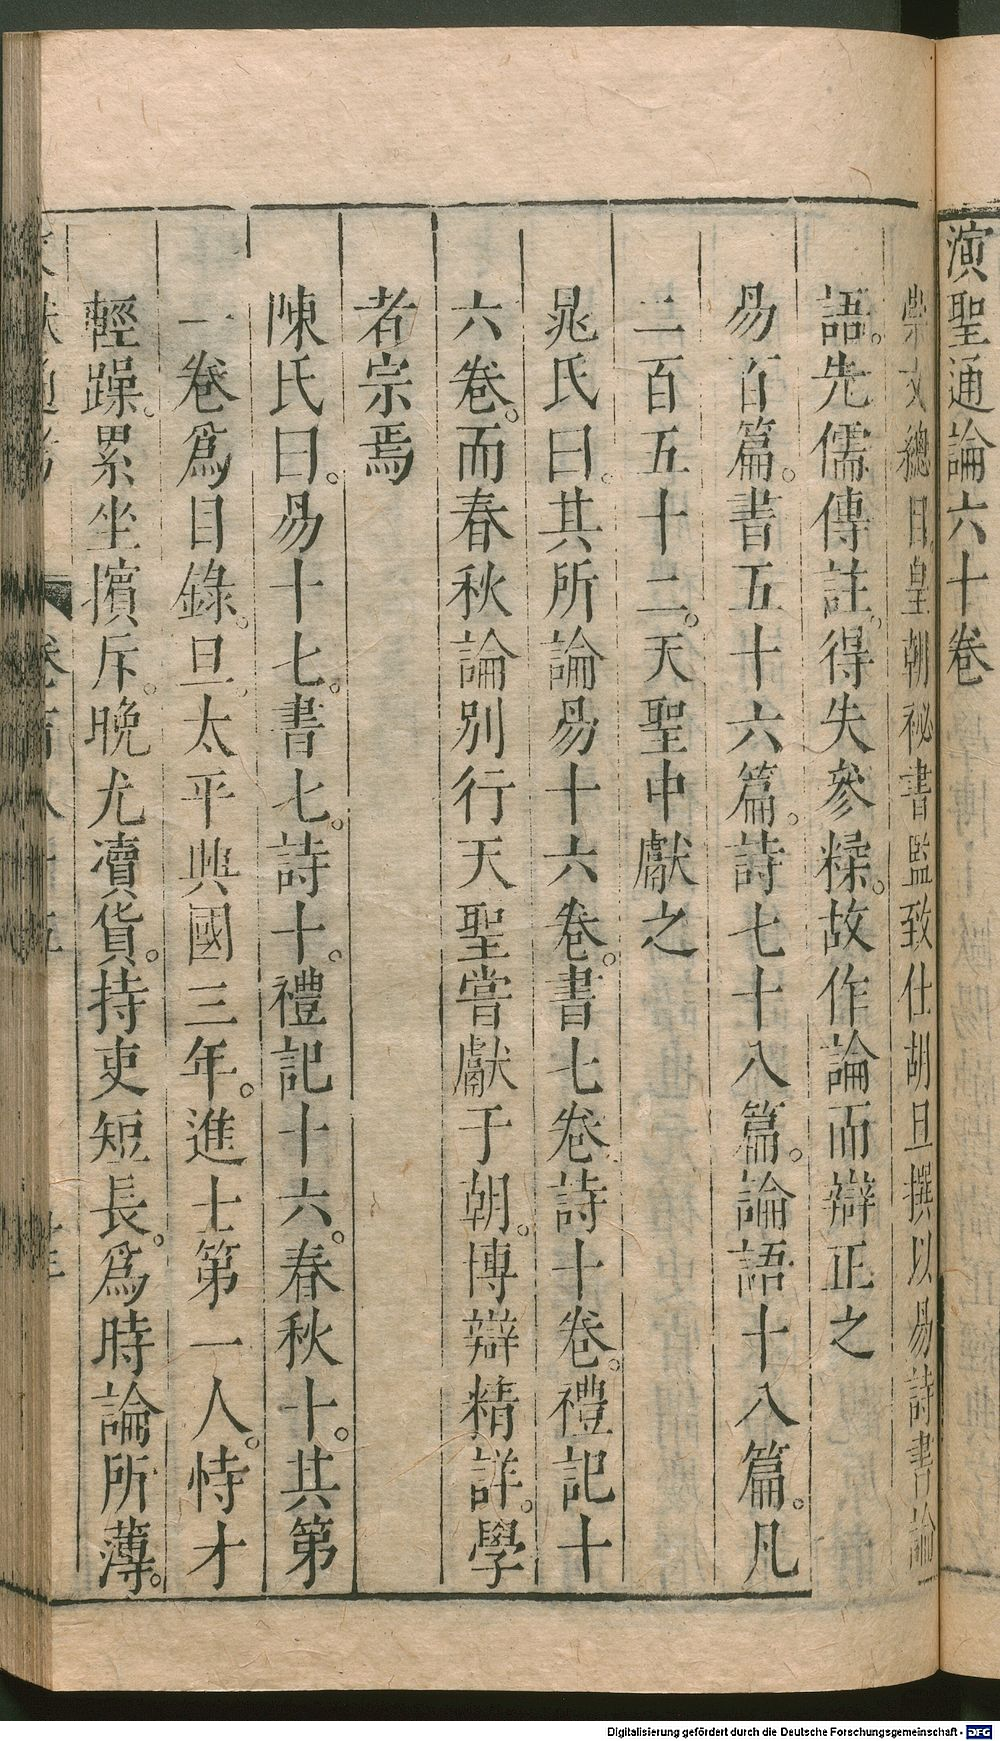 演聖通論六十卷
崇文總目皇朝祕書監致仕胡旦撰以易詩書論
語。先儒傳註。得失參糅。故作論而辯正之
易百篇。書五十六篇。詩七十八篇。論語十八篇。凡
二百五十二。天聖中獻之
晁氏曰。其所論易十六卷。書七卷。詩十卷。禮記十
六卷。而春秋論別行天聖嘗獻于朝。博辯精詳。學
者宗焉
陳氏曰。易十七。書七。詩十。禮記十六。春秋十。其第
一卷爲目錄。旦。太平興國三年。進士第一人。恃才
輕躁。累坐擯斥。晚尤瀆貨。持吏短長。爲時論所薄。
Digitalisierung gefördert durch die Deutsche Forschungsgemeinschaft - DFG